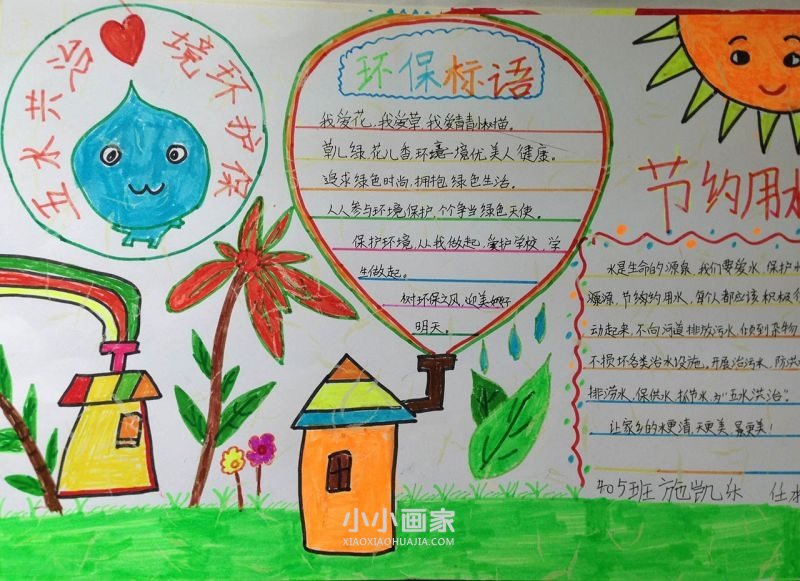 五水共治
境环护保
环保标语
我爱花,我爱草,我爱青青小树苗。
草儿绿,花儿香,环境优美人健康。
追求绿色时尚,拥抱绿色生活。
人人参与环境保护,个个争当绿色天使。
保护环境,从我做起,爱护学校,学
生做起。
树环保之风,迎美好
明天。
节约用水
水是生命的源泉,我们要爱水,保护水
源,节约用水,每个人都应该积极
动起来,不向河道排放污水,倾到杂物
不损坏各类治水设施。开展治污水,防洪
排涝水,保供水,抓节水,为"五水洪治"。
让家乡的水更清,天更美,景更美!
405班 施凯乐
小小画家
XIAOXIAOHUAJIA.COM